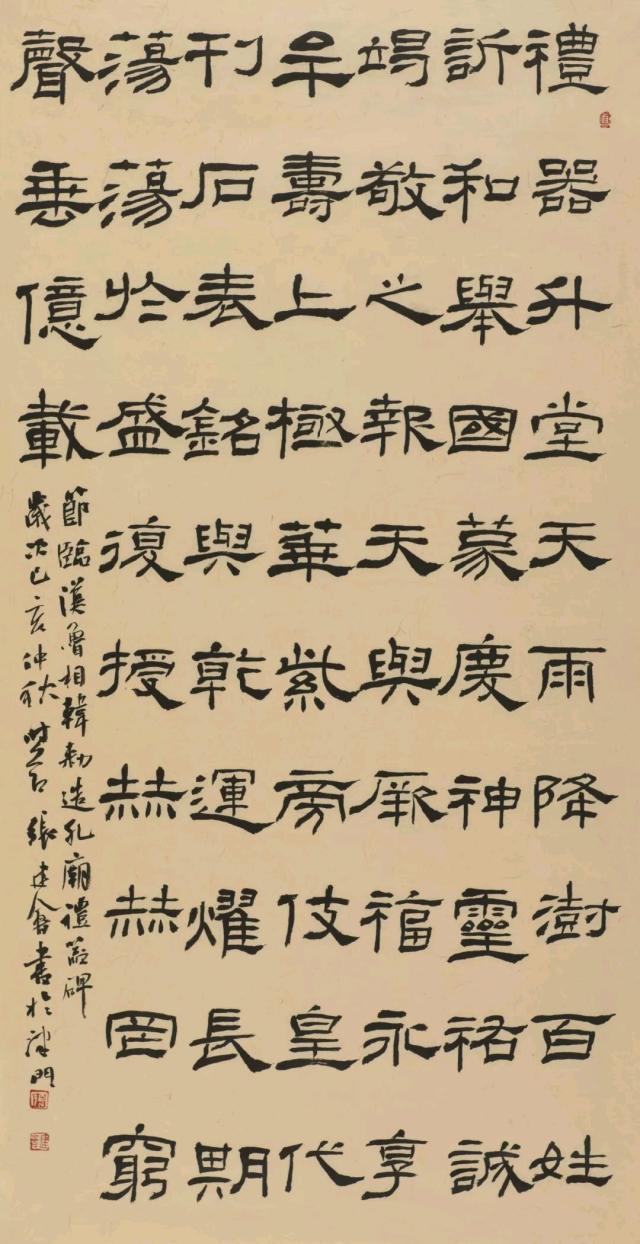 禮器升堂天雨降澍百姓
訢和舉國蒙慶神靈祐誠
竭敬之報天與厥福永享
牟壽上極華紫旁伎皇代
刊石表銘與乾運燿長期
蕩蕩於盛復授赫赫罔窮
聲垂億載
節臨漢魯相韓勑造孔廟禮器碑
歲次己亥仲秋張建會書於津門